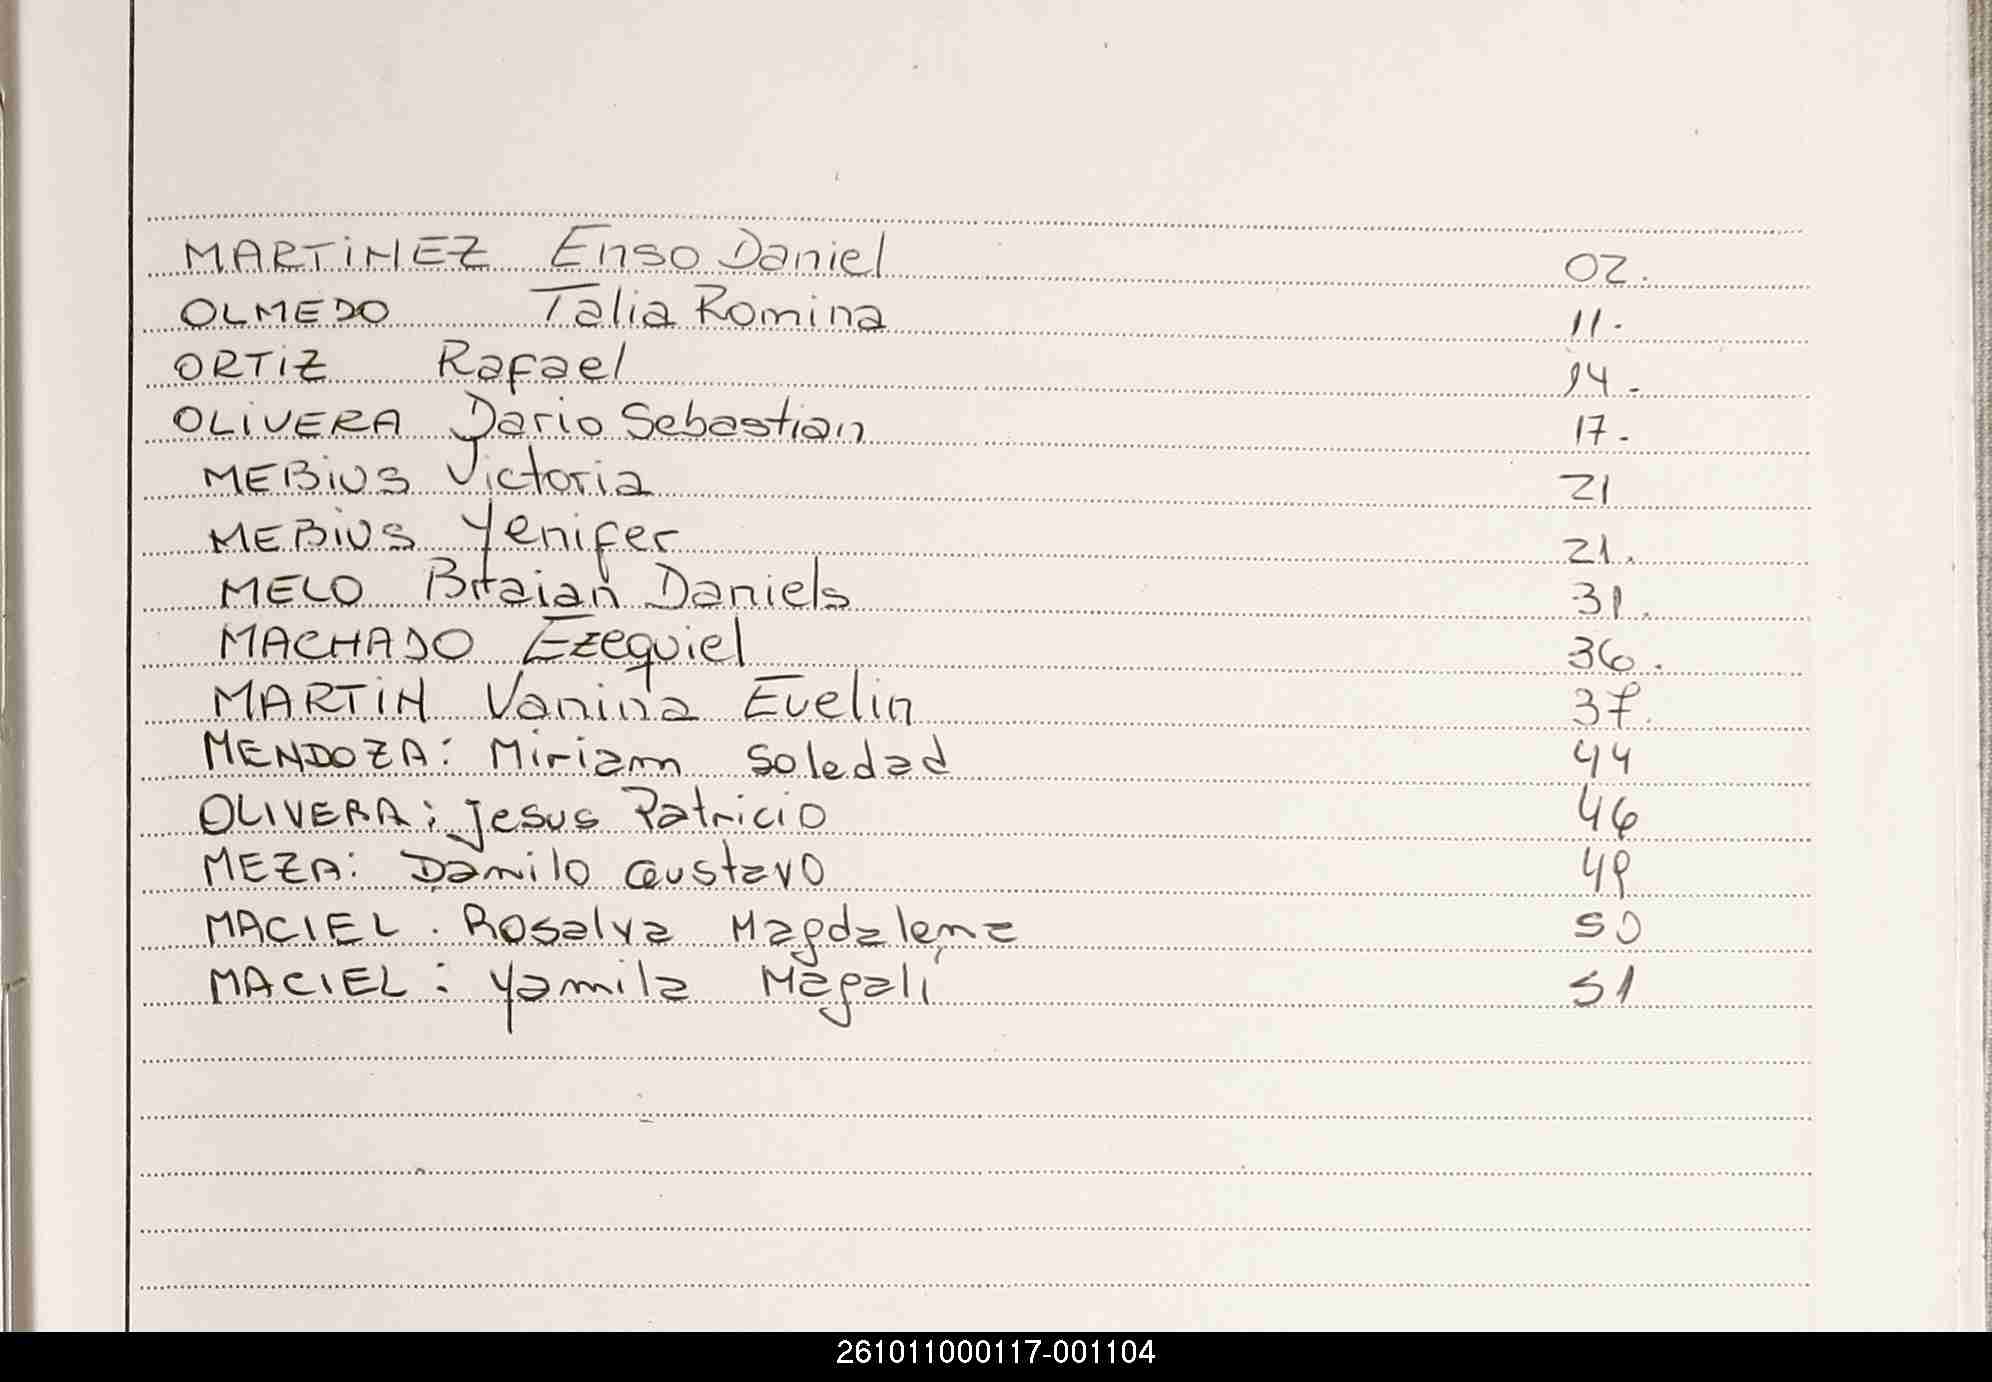 MARTiNEZ Enso Daniel 02.
OLMEDO Talia Romina 11.
ORTiZ Rafael 14.
OLiVERA Dario Sebastian 17.
MEBiUS Victoria 21
MEBiUS Yenifer 21.
MELO Braian Daniels 31.
MACHADO Ezequiel 36.
MARTiN Vanina Evelin 37.
MENDOZA: Miriam Soledad 44
OLIVERA: Jesus Patricio 46
MEZA: Danilo Gustavo 49
MACIEL. Rosalva Magdalena 50
MACIEL: Yamila Magali 51
261011000117-001104